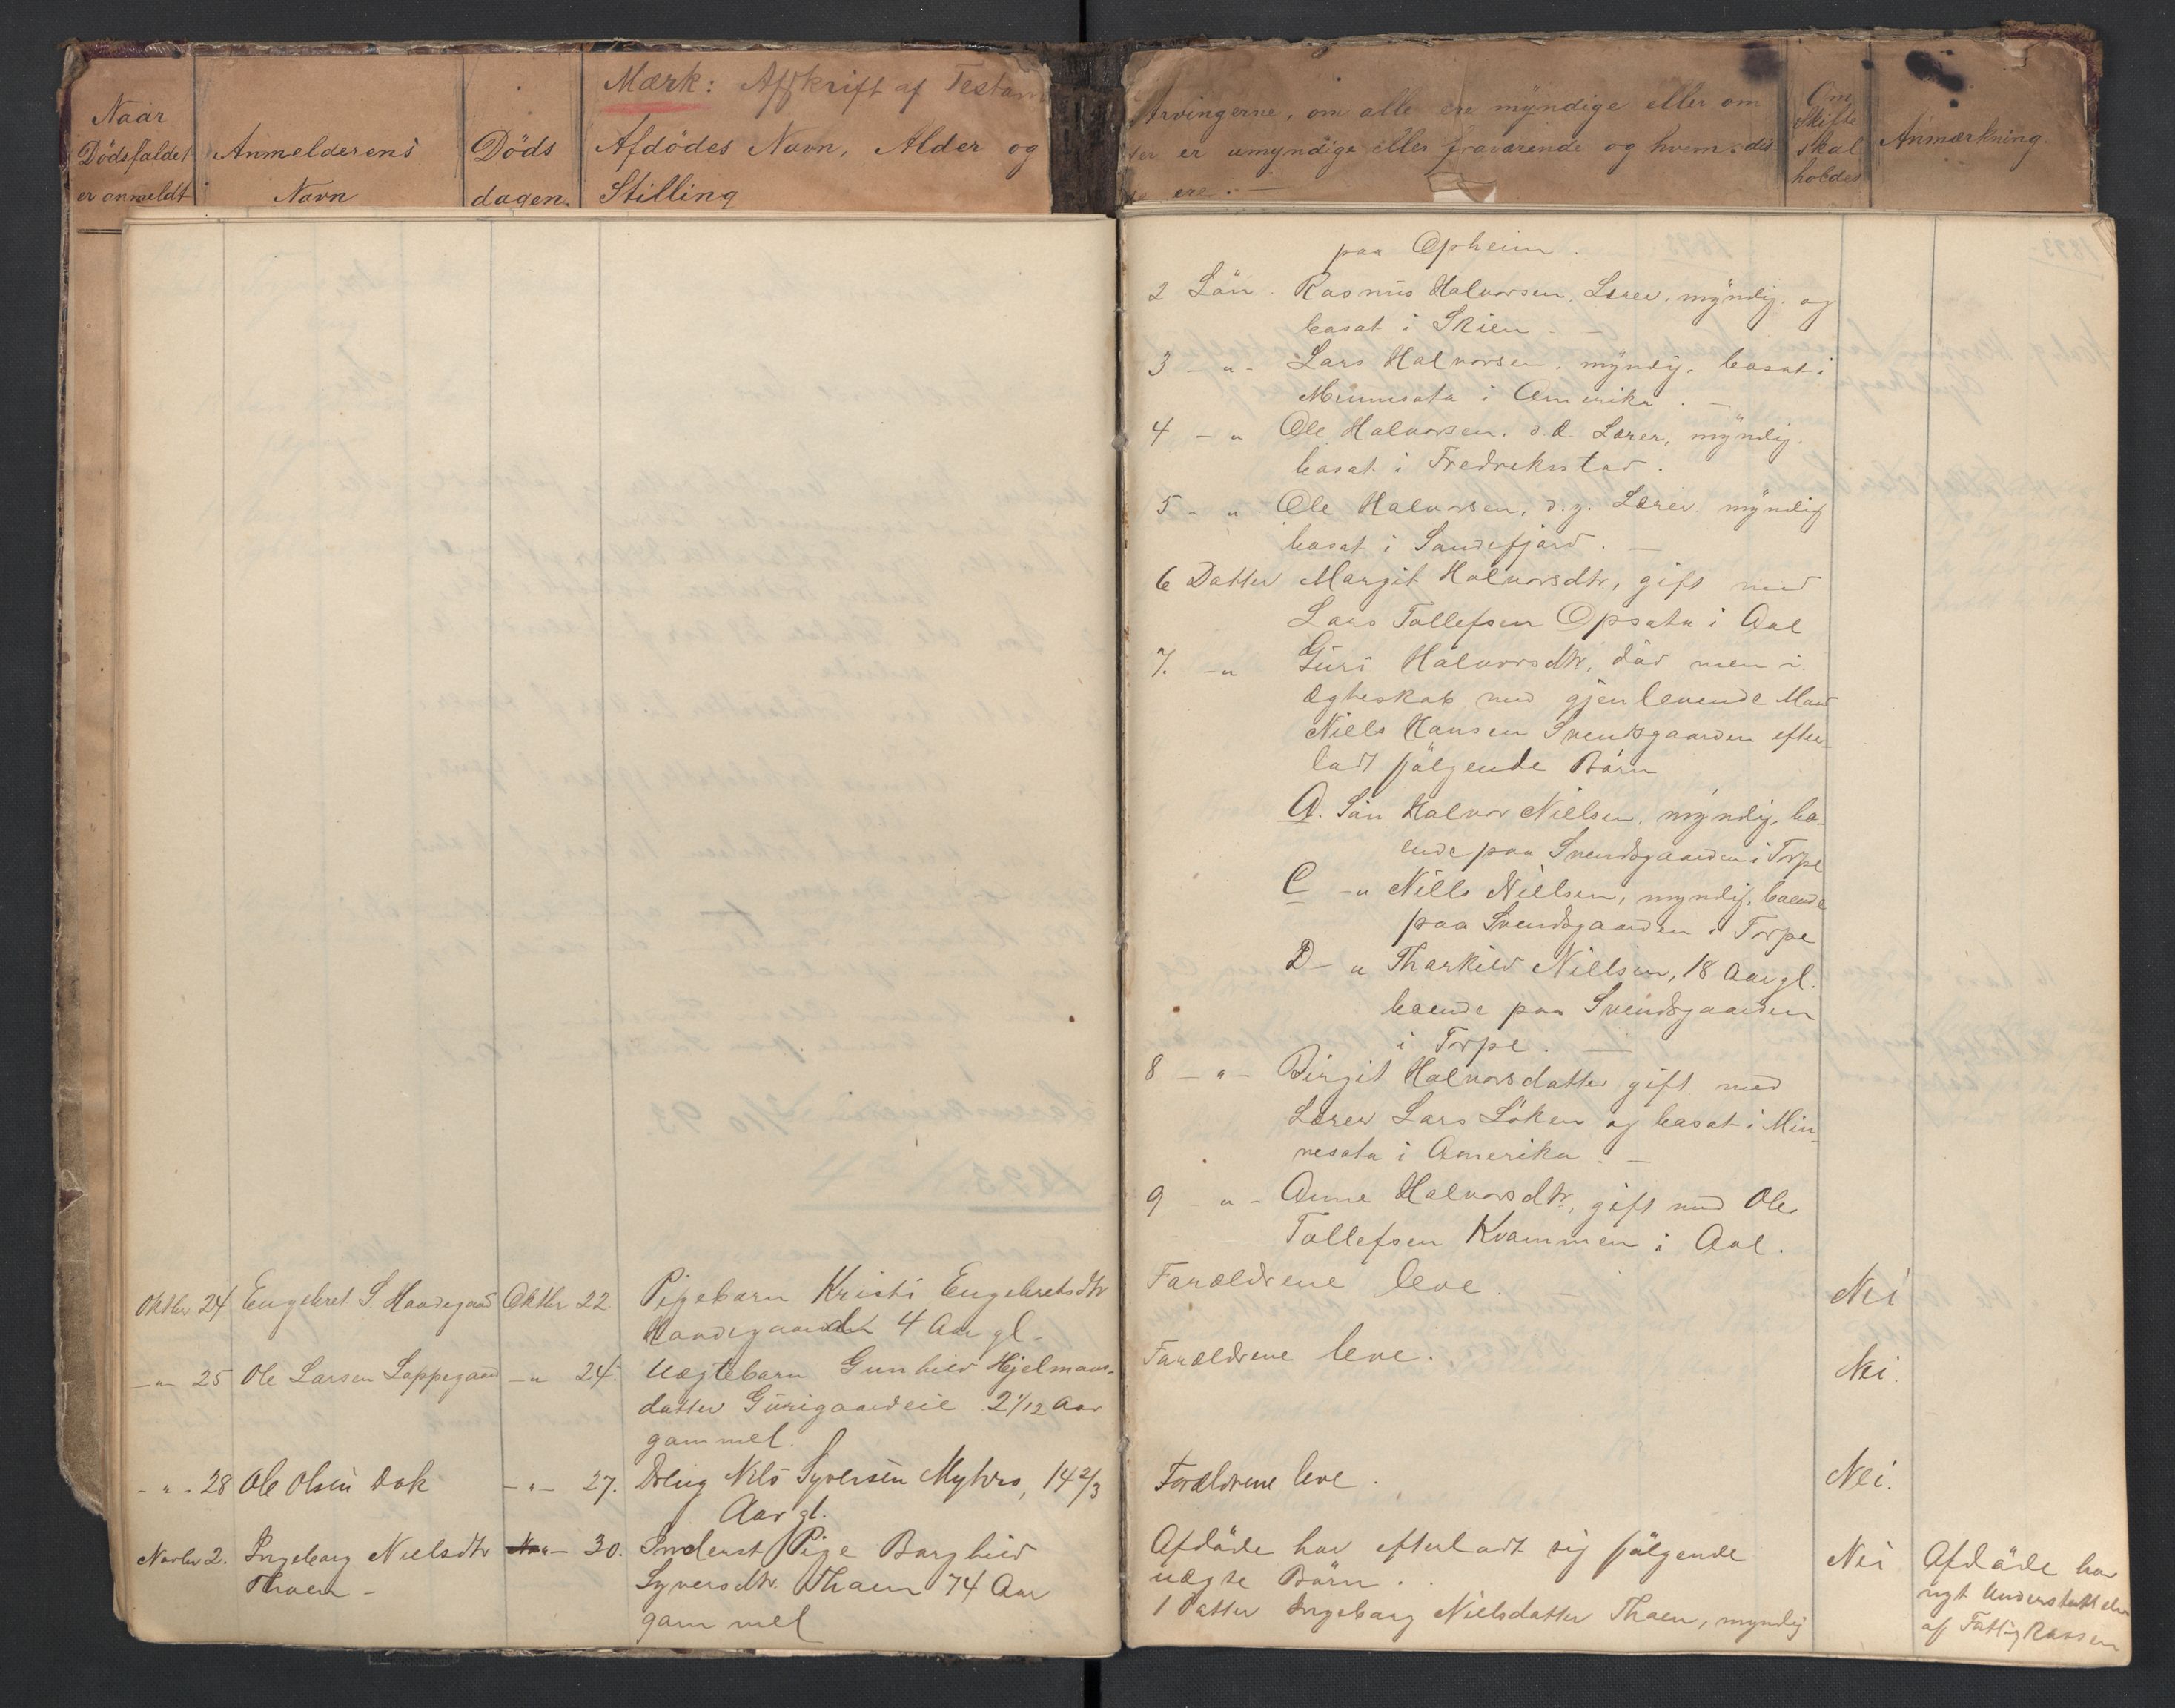 Mærk: Afskrift af Testam
Naar
Dödsfaldet
er anmeldt
Anmelderens
Navn
Döds
dagen.
Afdödes Navn, Alder og
Stilling
Arvingerne, om alle ere myndige eller om
er umyndige eller fraværende og hvem dis
ere.
Om
Skifte
skal
holdes
Anmærkning.
Oktbr 24 Engebret S. Haadegaard Oktbr 22. Pigebarn Kristi Engebretsdtr
4 Aar gl.
-"- 25 Ole Larsen Lappegaard -" 24. Uægtebarn Gunhild Hjelmans-
datter Gurigaardeie 2 1/12 Aar
gammel.
-"- 28 Ole Olsen Dok -"- 27. Dreng Nils Syversen Myhrs, 14 2/3
Aar gl.
Novbr 2. Ingeborg Nielsdtr -"- 30. Inderst Pige Borghild
Thoen -
Syversdtr. Thoen 74 Aar
gammel
paa Opheim.
2 Sön. Rasmus Halvorsen, Lærer, myndig. og
bosat i Skien. -
3 -"- Lars Halvorsen, myndig, bosat i
Minnesota i Amerika. -
4 -" Ole Halvorsen, d.æ. Lærer, myndig.
bosat i Fredriksstad.
5 -" Ole Halvorsen, d.y. Lærer myndig
bosat i Sandefjord. -
6 Datter Margit Halvorsdtr, gift med
Lars Tollefsen Opsata i Aal
7. -" Guri Halvorsdtr, död men i
Ægteskab med gjenlevende Mand
Niels Hansen Svendsgaarden efter-
ladt fölgende Börn
A. Sön Halvor Nielsen, myndig, bo-
ende paa Svendsgaarden i Torpe
C -" Nills Nielsen, myndig, boende
paa Svendsgaarden i Torpe
D -" Thorkild Nielsen, 18 Aar gl.
boende paa Svendsgaarden
i Torpe. -
8 -"- Birgit Halvorsdatter gift med
Lærer Lars Löken og bosat i Min-
nesota i Amerika. -
9 -"- Anne Halvorsdtr, gift med Ole
Tollefsen Kvammen i Aal.
Forældrene leve. - Nei
Forældrene leve. Nei.
Forældrene leve. Nei.
Afdöde har efterladt sig fölgende Nei
uægte Börn.
1 Datter Ingeborg Nielsdatter Thoen, myndig
Afdöde har
nyt Understöttelse
af Fattigkassen